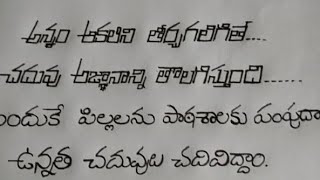 అన్నం ఆకలిని తీర్చగలిగితే....
చదువు అజ్ఞానాన్ని తొలగిస్తుంది......
అందుకే పిల్లలను పాఠశాలకు పంపుదాం
ఉన్నత చదువులు చదివిద్దాం.